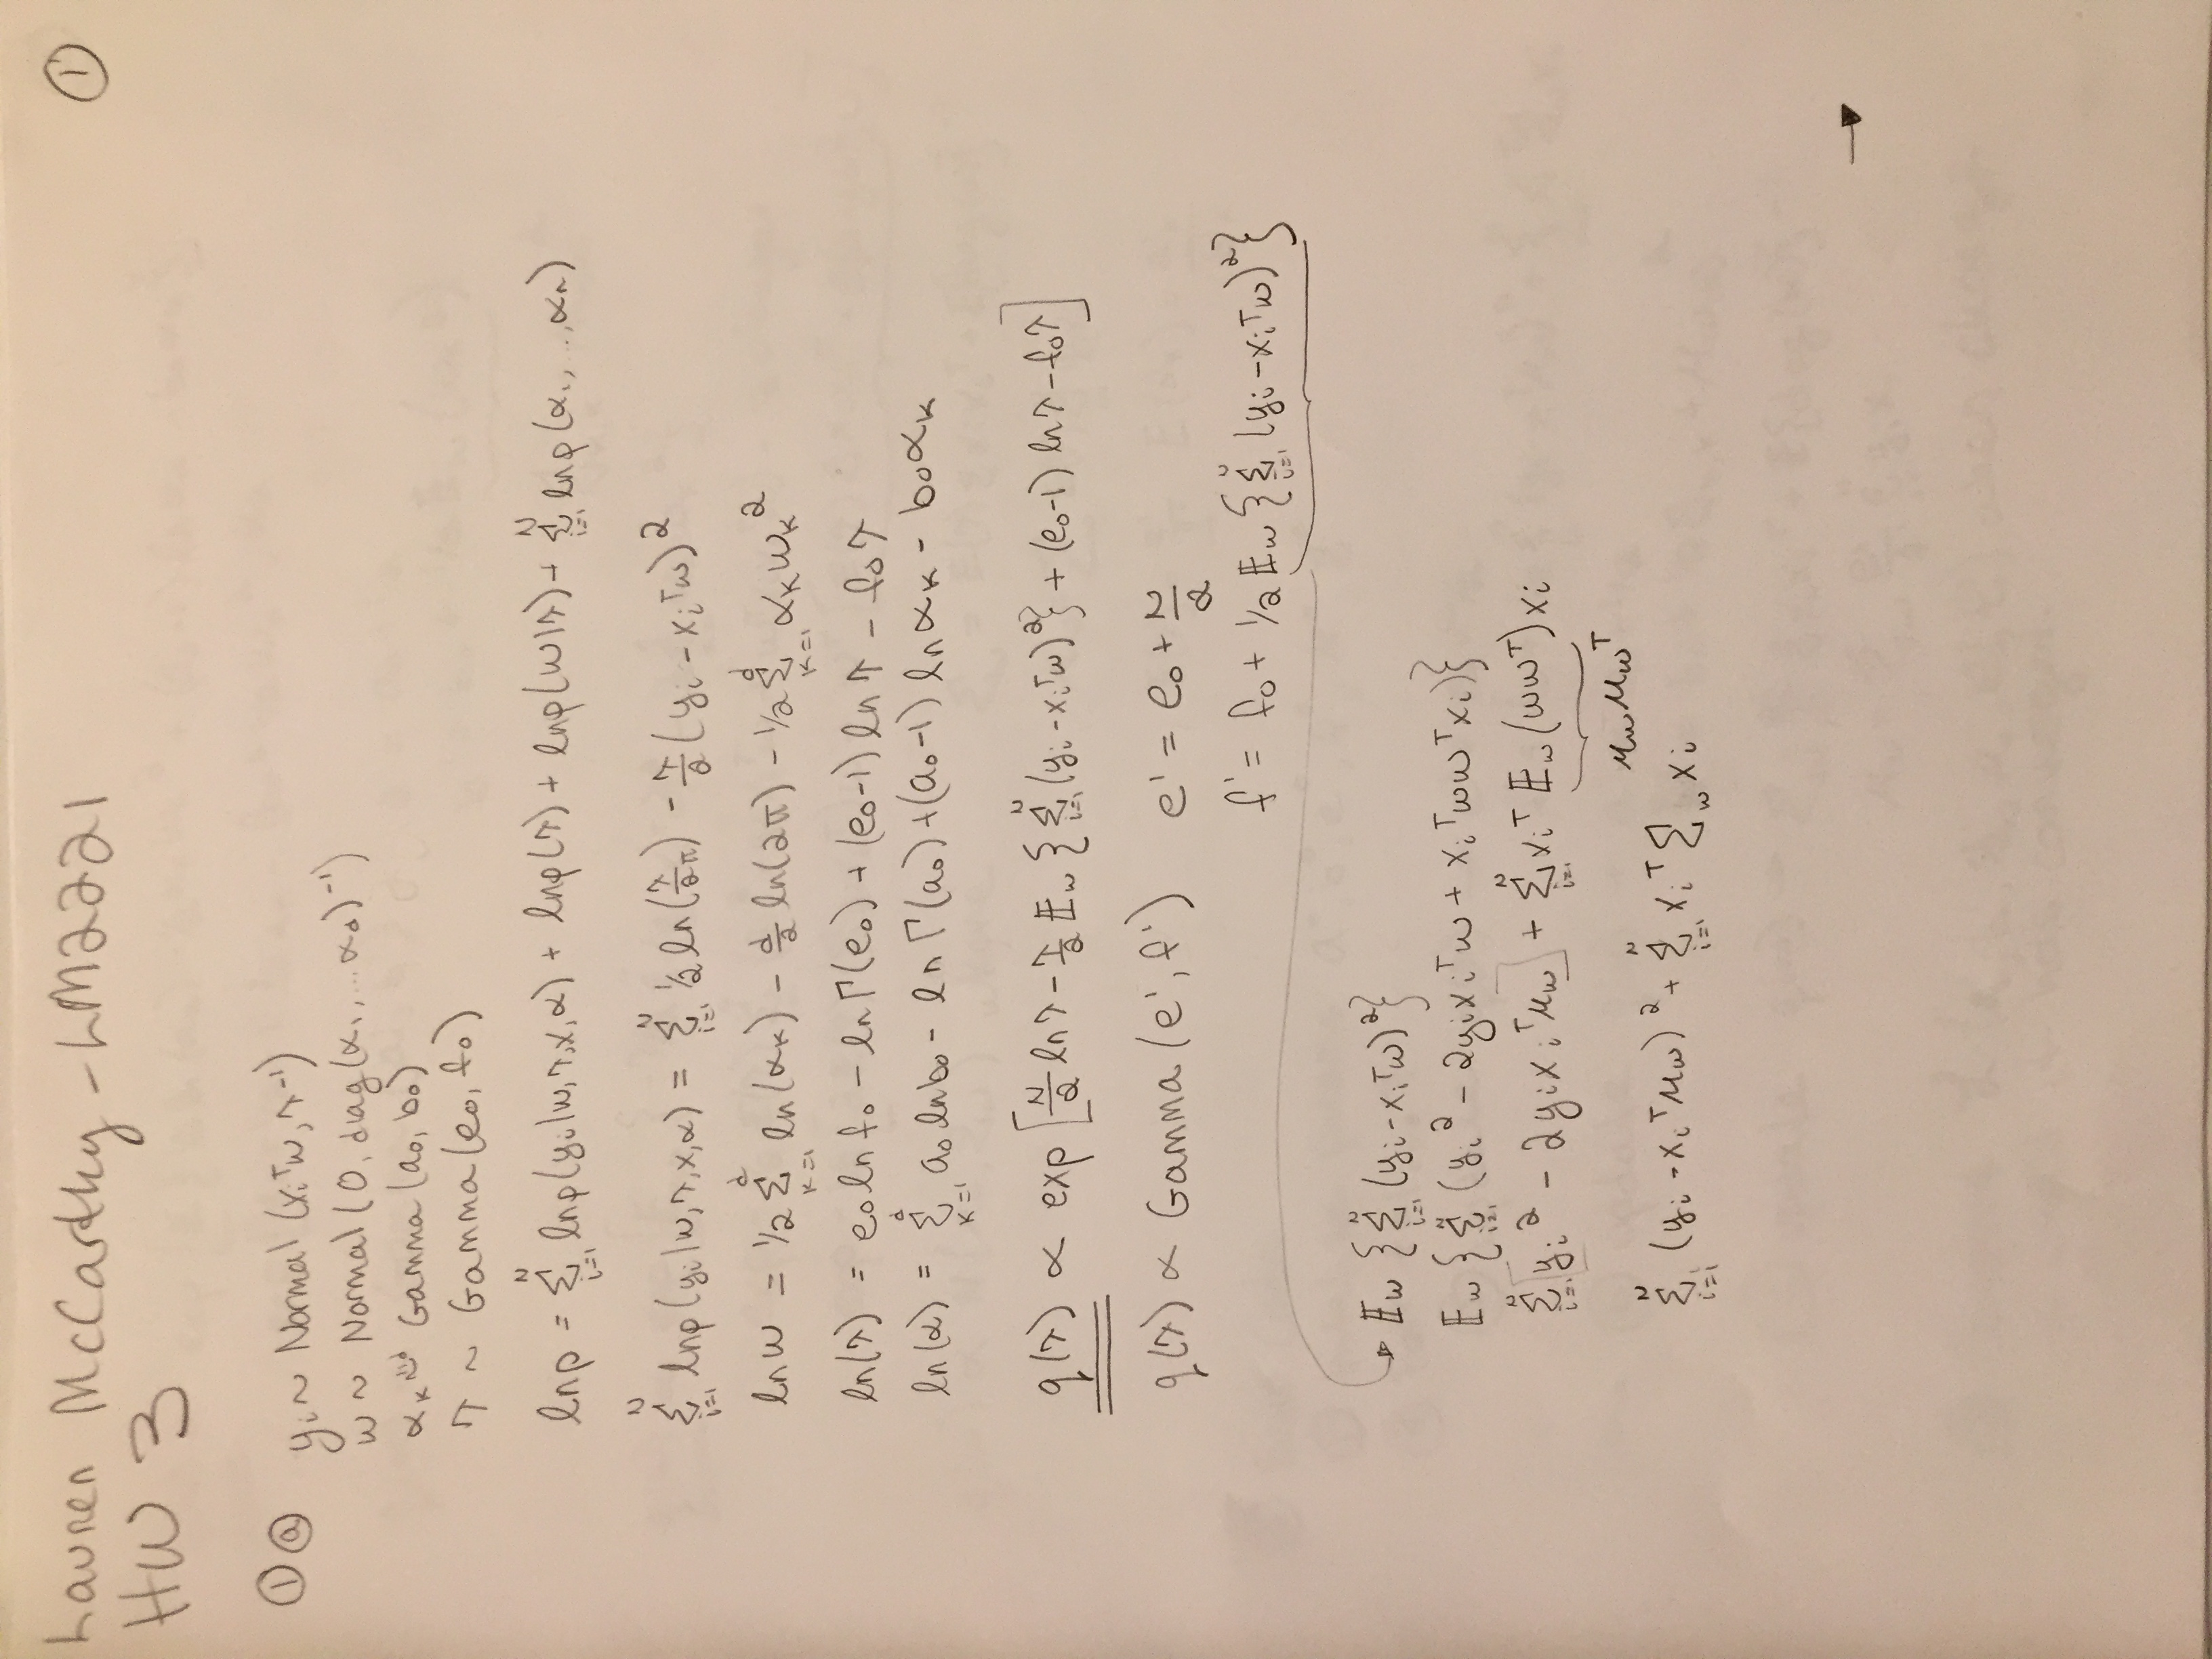 Lauren McCarthy - LM2221
①
HW 3
① ⓐ yᵢ ~ Normal (xᵢᵀw, λ⁻¹)
w ~ Normal (0, diag(α₁, ... α_d)⁻¹)
α_k ~iid Gamma (a₀, b₀)
λ ~ Gamma (e₀, f₀)
lnp = Σ_{i=1}^{N} lnp(yᵢ|w,λ,x,α) + lnp(λ) + lnp(w|λ) + Σ_{i=1}^{N} lnp(α₁, ..., αₙ)
Σ_{i=1}^{N} lnp(yᵢ|w,λ,x,α) = Σ_{i=1}^{N} 1/2 ln(λ/2π) - λ/2 (yᵢ - xᵢᵀw)²
ln w = 1/2 Σ_{k=1}^{d} ln(α_k) - d/2 ln(2π) - 1/2 Σ_{k=1}^{d} α_k w_k²
ln(λ) = e₀ ln f₀ - ln Γ(e₀) + (e₀-1) ln λ - f₀λ
ln(α) = Σ_{k=1}^{d} a₀ ln b₀ - ln Γ(a₀) + (a₀-1) ln α_k - b₀α_k
q(λ) ∝ exp [N/2 ln λ - λ/2 𝔼_w {Σ_{i=1}^{N} (yᵢ - xᵢᵀw)²} + (e₀-1) ln λ - f₀λ]
q(λ) ∝ Gamma (e', f') e' = e₀ + N/2
f' = f₀ + 1/2 𝔼_w {Σ_{i=1}^{N} (yᵢ - xᵢᵀw)²}
→ 𝔼_w {Σ_{i=1}^{N} (yᵢ - xᵢᵀw)²}
𝔼_w {Σ_{i=1}^{N} (yᵢ² - 2yᵢxᵢᵀw + xᵢᵀwwᵀxᵢ)}
Σ_{i=1}^{N} [yᵢ² - 2yᵢxᵢᵀμ_w] + Σ_{i=1}^{N} xᵢᵀ 𝔼_w(wwᵀ) xᵢ
μ_w μ_wᵀ
Σ_{i=1}^{N} (yᵢ - xᵢᵀμ_w)² + Σ_{i=1}^{N} xᵢᵀ Σ_w xᵢ
→